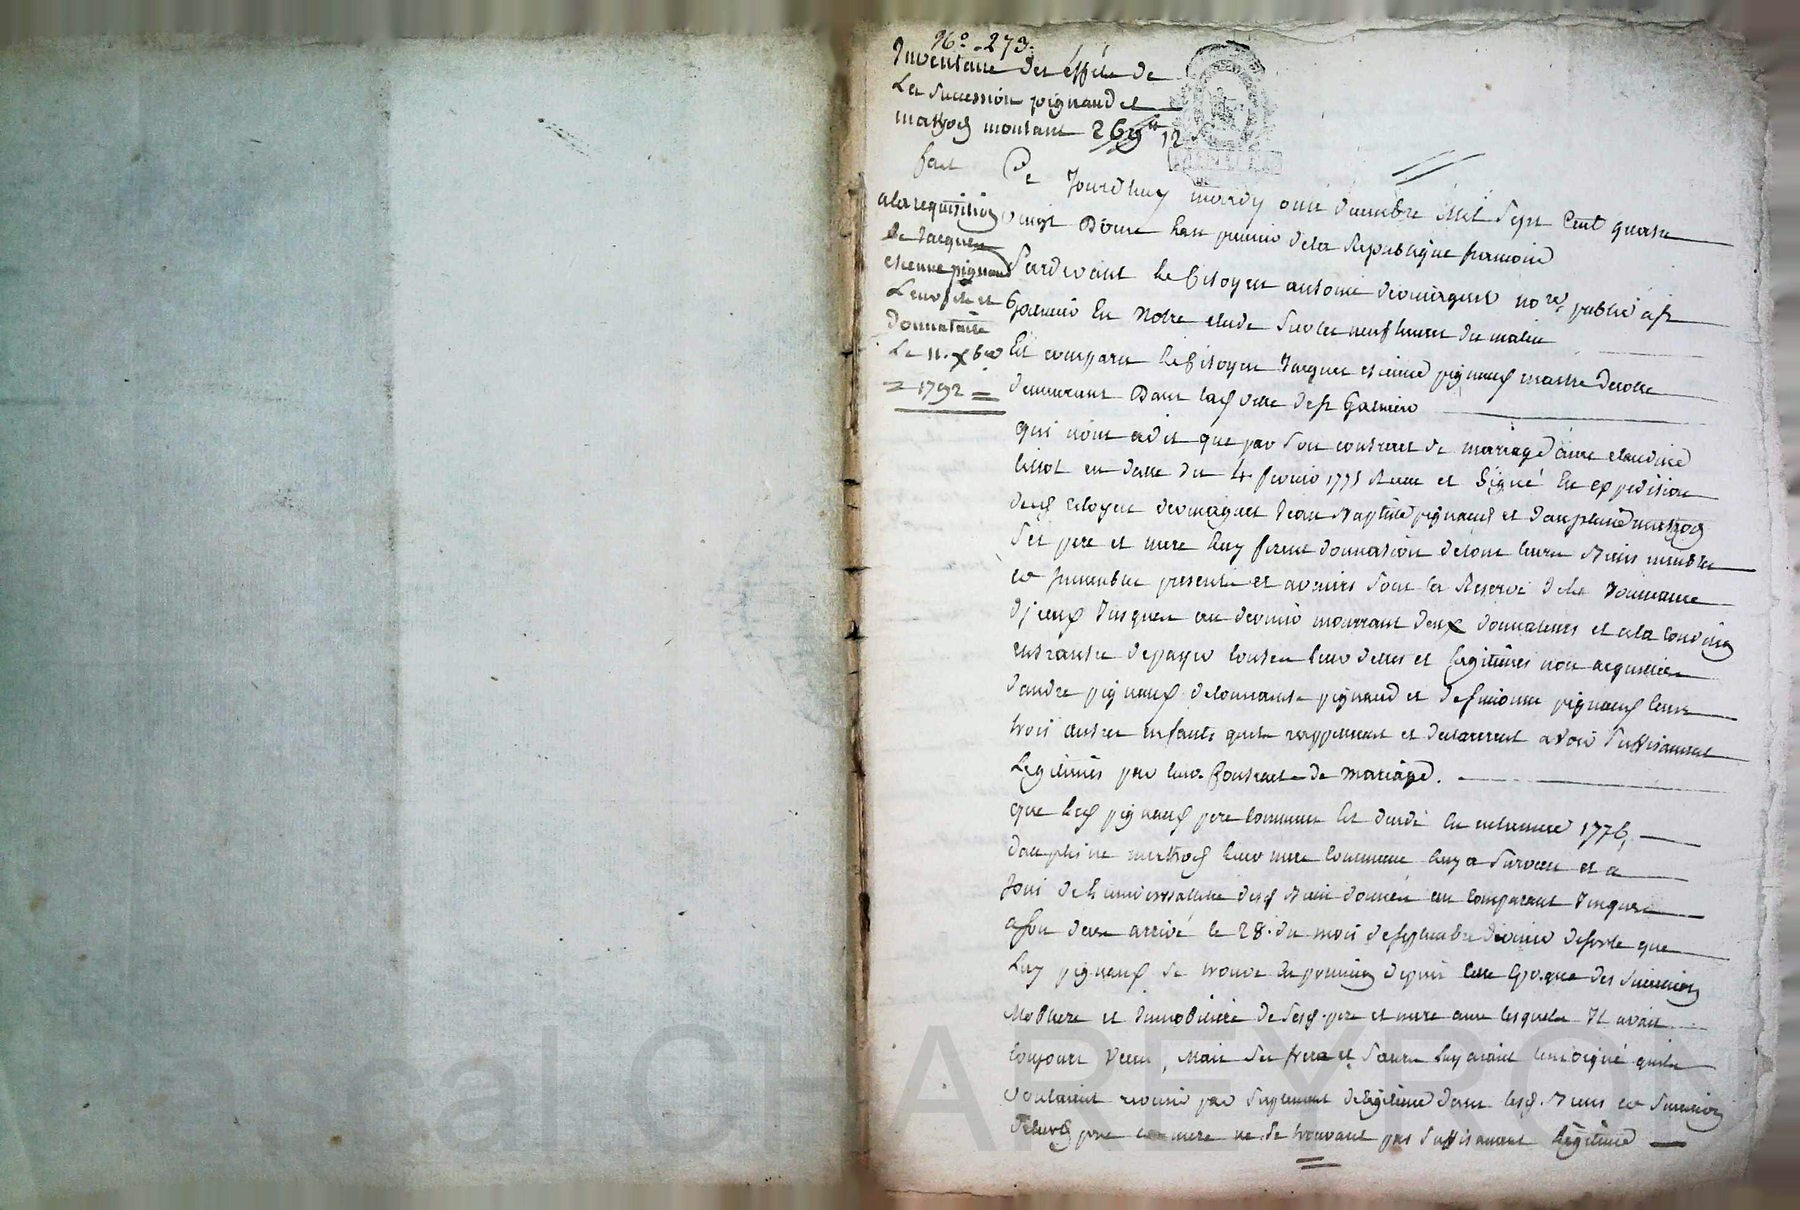 N° 273.
Inventaire des effets de
La succession pignaud et
mathon montant 269 ₶ 12
fait
a la requisition
de Jacques
etienne pignaud
Leur fils et
Donnataire
Le 11. Xbre
1792
Ce Jourdhuy mardy onze decembre mil sept cent quatre
vingt Douze l'an premier de la Republique francoise
Pardevant le Citoyen antoine deomaguet nore. public a st
Galmier En Notre etude sur les neuf heures du matin
Est comparu le Citoyen Jacques etienne pignaud maitre
demeurant Dans lad ville de st Galmier
qui nous a dit que par son contract de mariage avec claudine
en datte du 4 fevrier 1775 Recu et Signé En expedition
dud Citoyen deomaguet Jean Baptiste pignaud et dauphine mathon
Ses pere et mere luy firent donnation de tous leurs Biens meubles
et Immeubles presents et avenirs sous la Reserve de la Jouissance
d'jceux Jusques au dernier mourrant deux donnateurs et a la condition
de payer toutes leurs dettes et Legitimes non acquittées
d'andre pignaud de pignaud et de pignaud leurs
trois autres enfants quils rappellerent et declarerent avoir suffisament
Legitimés par leurs Contracts de mariage.
que led pignaud pere commun Est decedé En 1776,
dauphine mathon leur mere commune luy a survecu et a
Joui de L'universallité desd Biens donnés au comparant Jusques
a son deces arrivé le 28. du mois de septembre dernier desorte que
Luy pignaud se trouve En possession depuis cette Epoque des successions
Mobiliere et Immobiliere de Sesd. pere et mere avec lesquels Il avait
toujours Vecu, Mais ses freres et Soeurs luy aiant temoigné quils
voulaient revenir par suplement de legitime dans lesd. Biens et succession
de leurs pere et mere ne se trouvant pas suffisament legitimé
Pascal CHAREYRON